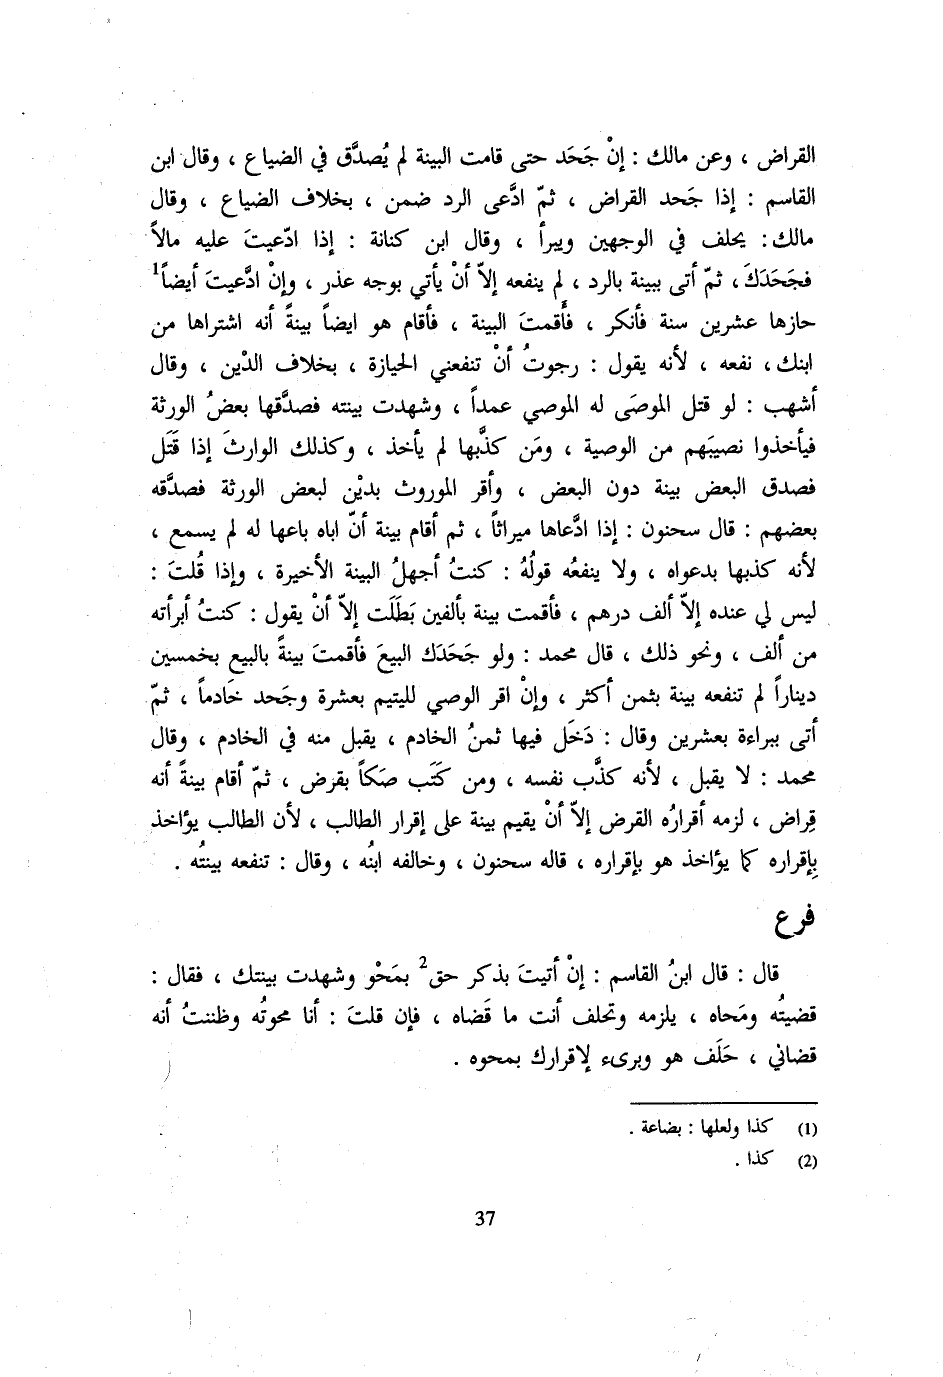 القراض ، وعن مالك : إنْ جَحَد حتى قامت البينة لم يُصدَّق في الضياع ، وقال ابن
القاسم : إذا جَحد القراض ، ثمّ ادَّعى الرد ضمن ، بخلاف الضياع ، وقال
مالك : يحلف في الوجهين ويبرأ ، وقال ابن كنانة : إذا ادّعيتَ عليه مالاً
فجَحَدَكَ ، ثمّ أتى ببينة بالرد ، لم ينفعه إلاّ أنْ يأتي بوجه عذر ، وإنْ ادَّعيتَ أيضاً1
حازها عشرين سنة فأنكر ، فأَقمتَ البينة ، فأقام هو ايضاً بينةً أنه اشتراها من
ابنك ، نفعه ، لأنه يقول : رجوتُ أنْ تنفعني الحيازة ، بخلاف الدْين ، وقال
أشهب : لو قتل الموصَى له الموصي عمداً ، وشهدت بينته فصدَّقها بعضُ الورثة
فيأخذوا نصيبَهم من الوصية ، ومَن كذَّبها لم يأخذ ، وكذلك الوارثَ إذا قَتَل
فصدق البعض بينة دون البعض ، وأقر الموروث بديْن لبعض الورثة فصدَّقه
بعضهم : قال سحنون : إذا ادَّعاها ميراثاً ، ثم أقام بينة أنّ اباه باعها له لم يسمع ،
لأنه كذبها بدعواه ، ولا ينفعُه قولُهُ : كنتُ أجهلُ البينة الأخيرة ، وإذا قُلتَ :
ليس لي عنده إلاّ ألف درهم ، فأقمت بينة بألفين بَطَلَت إلاّ أنْ يقول : كنتُ أبرأته
من ألف ، ونحو ذلك ، قال محمد : ولو جَحَدَك البيعَ فأقمتَ بينةً بالبيع بخمسين
ديناراً لم تنفعه بينة بثمن أكثر ، وإنْ اقر الوصي لليتيم بعشرة وجَحد خَادماً ، ثمّ
أتى ببراءة بعشرين وقال : دَخَل فيها ثمنُ الخادم ، يقبل منه في الخادم ، وقال
محمد : لا يقبل ، لأنه كذَّب نفسه ، ومن كَتَب صَكاً بقرض ، ثمّ أقام بينةً أنه
قِراض ، لزمه أقرارُه القرض إلاّ أنْ يقيم بينة على إقرار الطالب ، لأن الطالب يؤاخذ
بِإقراره كما يؤاخذ هو بإقراره ، قاله سحنون ، وخالفه ابنُه ، وقال : تنفعه بينتُه .
فرع
قال : قال ابنُ القاسم : إنْ أتيتَ بذكر حق2 بمَحْو وشهدت بينتك ، فقال :
قضيتُه ومَحاه ، يلزمه وتحلف أنت ما قَضاه ، فإن قلتَ : أنا محوتُه وظننتُ أنه
قضاني ، حَلَف هو وبرىء لاقرارك بمحوه .
(1) كذا ولعلها : بضاعة .
(2) كذا .
37